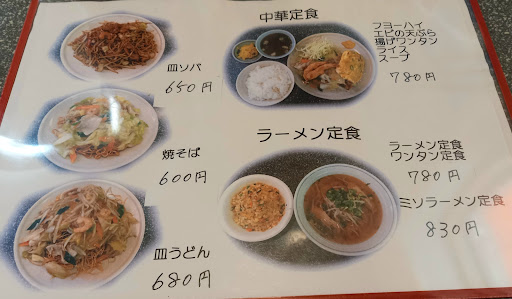 皿ソバ
650円
焼そば
600円
皿うどん
680円
中華定食
フヨーハイ
エビの天ぷら
揚げワンタン
ライス
スープ
780円
ラーメン定食
ラーメン定食
ワンタン定食
780円
ミソラーメン定食
830円